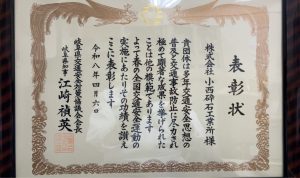 表彰状
株式会社 小西砕石工業所 様
貴団体は多年交通安全思想の
普及と交通事故防止に尽力され
極めて顕著な成果を挙げられた
ことは他の模範であります
よって春の全国交通安全運動の
実施にあたりその功績を讃え
ここに表彰します
令和八年四月六日
岐阜県交通安全対策協議会会長
岐阜県知事 江崎禎英